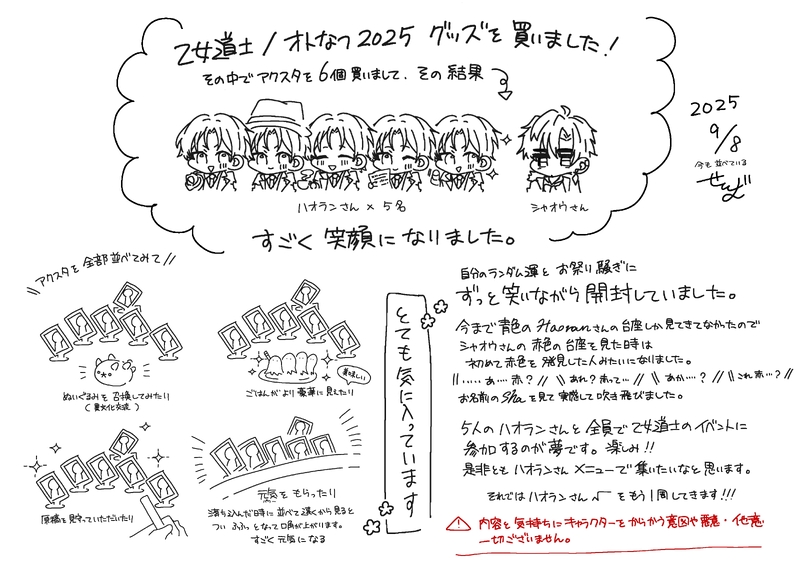 乙女道士/オトなつ2025 グッズを買いました!
その中でアクスタを6個買いまして、その結果
ハオランさん×5名
シャオウさん
すごく笑顔になりました。
2025
9/8
今も並べている
アクスタを全部並べてみて
ぬいぐるみを召喚してみたり
(異文化交流)
ごはんがより豪華に見えたり
美味しい
原稿を見守っていただいたり
元気をもらったり
落ち込んだ時に並べて遠くから見ると
ついふふっとなって口角が上がります。
すごく元気になる
とても気に入っています
自分のランダム運とお祭り騒ぎに
ずっと笑いながら開封していました。
今まで青色のHaoranさんの台座しか見てきてなかったので
シャオウさんの赤色の台座を見た時は
初めて赤色を発見した人みたいになりました。
‥‥あ…赤?
あれ?赤って…
あか…?
これ赤…?
お名前のShaを見て実感して吹き飛びました。
5人のハオランさんと全員で乙女道士のイベントに
参加するのが夢です。楽しみ!!
是非ともハオランさんメニューで集いたいなと思います。
それではハオランさん√をもう1周してきます!!!
内容と気持ちにキャラクターをからかう意図や悪意・他意
一切ございません。